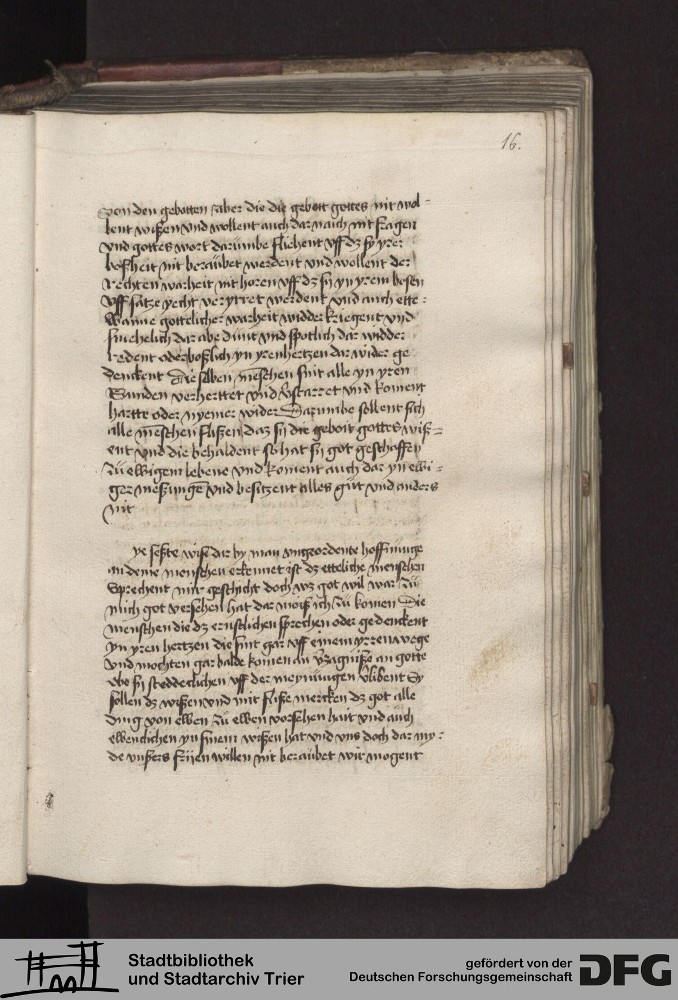 16.
von den gebotten aber die die gebott gottes nit wol-
lent wißen vnd wollent auch dar naich nit fragen
vnd gottes wort darumbe fliehent vff dz sy yrer
boßheit nit beraubet werdent vnd wollent der
rechten warheit nit horen vff dz sy yn yrem bosen
vff satze yecht veryrret werdent vnd auch ette-
wanne gottelicher warheit widder kriegent vnd
smehelich dar abe dunt vnd spotlich dar widder
redent oder boßlich yn yren hertzen dar wider ge
denckent Die selben menschen sint alle yn yren
sunden verhertet vnd v̾starret vnd koment
hartte oder nyemer wider Darumbe sollent sich
alle menschen flißen daz sy die gebott gottes wiß-
ent vnd die behaldent so hat sy got geschaffen
zu ewigem lebene vnd koment auch dar yn ewi-
ger nießungē vnd besitzent alles gut vnd anders
nit
ye seßte wise dar by man vngeordente hoffnunge
an deme menschen erkennet ist dz etteliche menschen
sprechent mir geschicht doch wz got wil war zu
mich got versehen hat dar moiß ich zu komen Die
menschen die dz ernstlichen sprechen oder gedenckent
yn yren hertzen die sint gar vff einem yrren wege
vnd mochten gar balde komen an v̾zagniße an gotte
obe sy steddeclichen vff der meynungen v̾libent Sy
sollen dz wißen vnd mit fliße mercken dz got alle
ding von ewen zu ewen vorsehen hait vnd auch
ewenclichen yn sinem wißen hat vnd vns doch dar my-
de vnsers frijen willen nit beraubet wir mogent
Stadtbibliothek
und Stadtarchiv Trier
gefördert von der
Deutschen Forschungsgemeinschaft
DFG